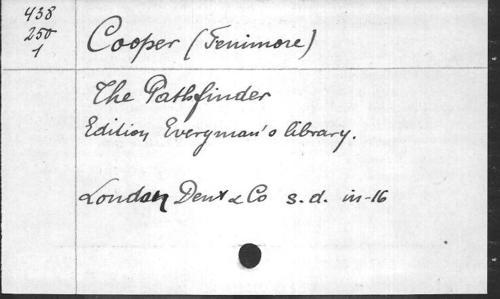 438
250
1
Cooper (Fenimore)
The Pathfinder
Edition Everyman's library.
London Dent & Co s.d. in-16